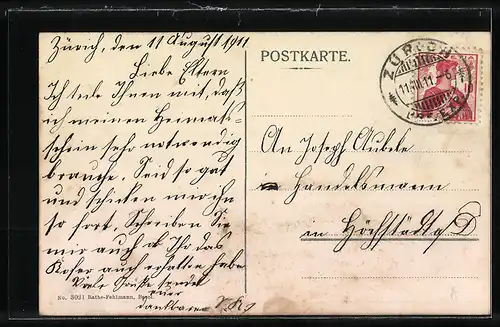 Zürich, den 11 August 1911
POSTKARTE.
Liebe Eltern
Ich teile Ihnen mit, daß
ich meinen Heimats-
schein sehr notwendig
brauche. Seid so gut
und schicken mir ihn
so fort. Schreiben Sie
mir auch ob Ihr das
Kofer auch erhalten habe
Viele Grüße sendet
euer
dankbarer
An Joseph Aubele
Handelsmann
in Höchstädt a/D
ZÜRICH
11.VIII.11.-6
No. 3021 Rathe-Fehlmann, Basel.